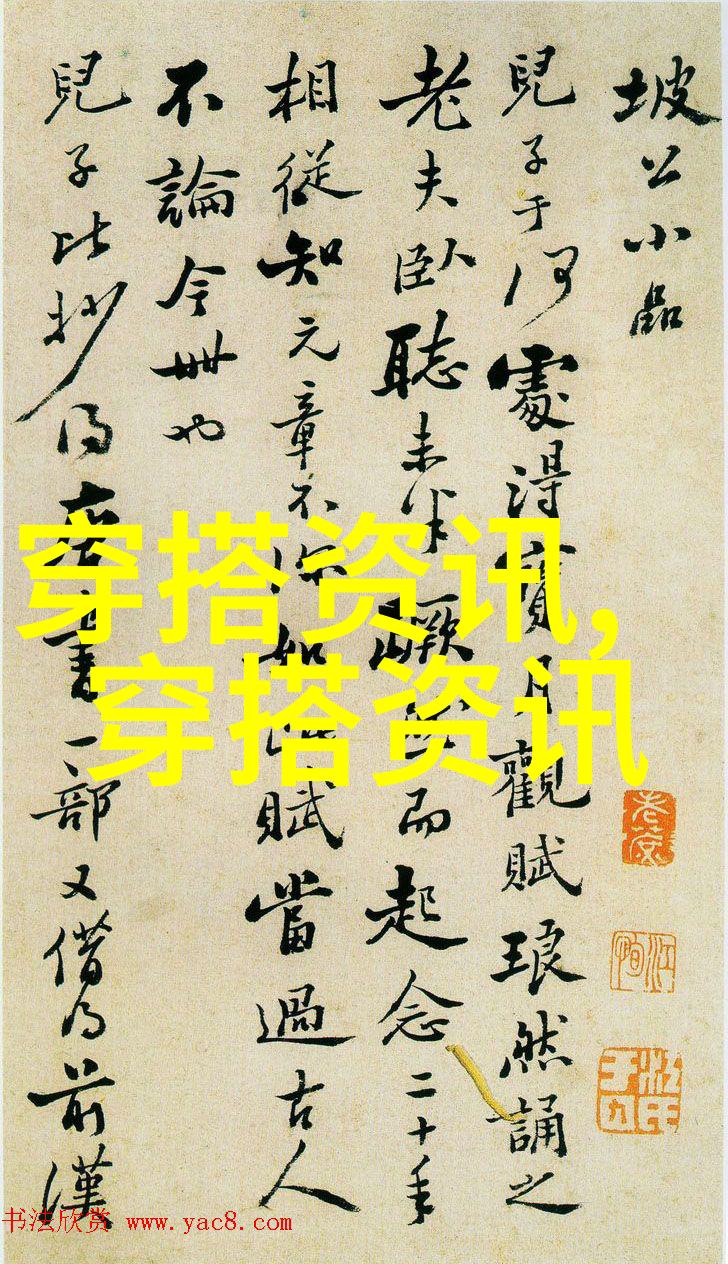 坡公小品
兒子于何處得寶月觀賦琅然誦之
老夫臥聽未半蹶然而起念二十年
相從知元章不如此賦當過古人
不論今世也
兒子比抄得唐書一部又借得前漢
穿搭资讯,
穿搭资讯
书法欣赏 www.yac8.com